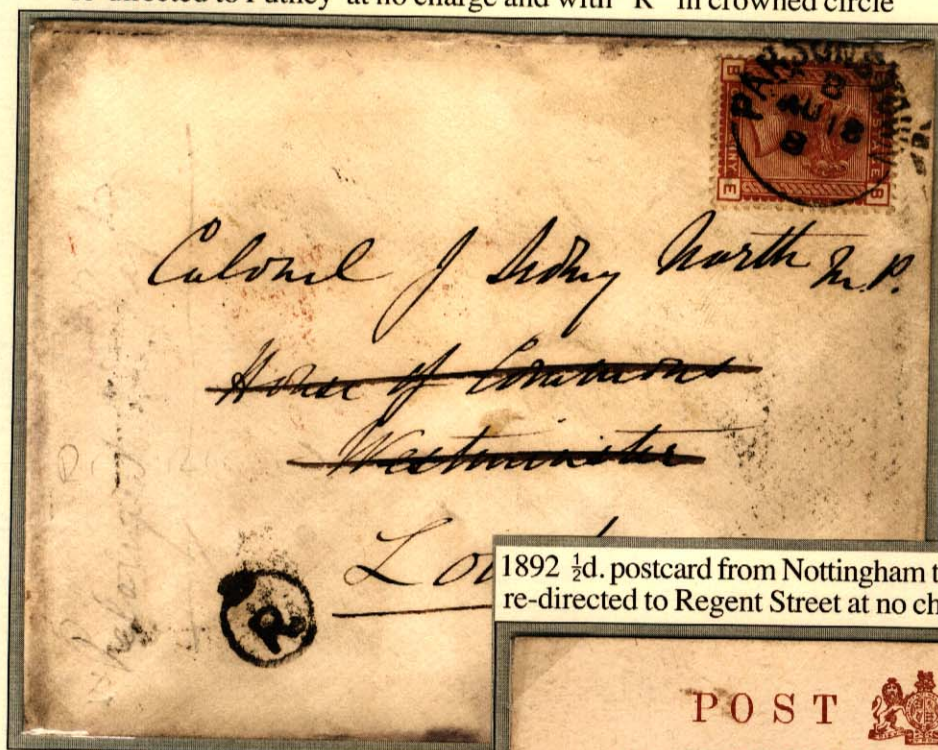 re-directed to Putney at no charge and with "R" in crowned circle
PARSONS
8
AU 18
8
B
E
B
Colonel J Sidney North M.P.
House of Commons
Westminster
Lon
R
1892 ½d. postcard from Nottingham t
re-directed to Regent Street at no ch
POST